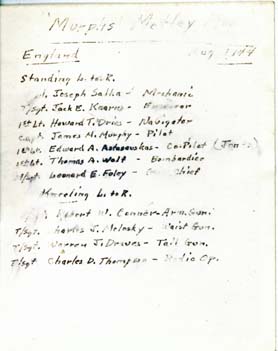 Murphs Motley
England Aug. 1944
Standing L. to R.
Joseph Salka - Mechanic
T/Sgt. Jack E. Kearns -
1st Lt. Howard T. Dries - Navigator
Capt. James M. Murphy - Pilot
1st Lt. Edward A. - Co-Pilot
1st Lt. Thomas A. Wolf - Bombardier
Leonard E. Foley - Chief
Kneeling L. to R.
Robert W. Connor - Arm. Gun.
T/Sgt. Charles J. Melosky - Waist Gun.
T/Sgt. Warren J. Drewes - Tail Gun.
T/Sgt Charles D. Thompson - Radio Op.